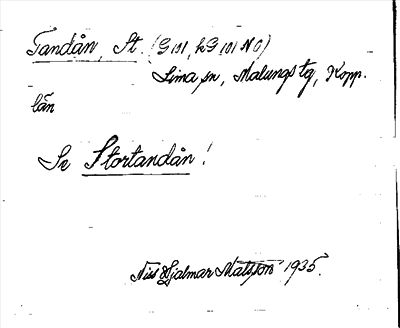 Tandån, St. (G 101, hG 101 NO)
Lima sn, Malungs tg, Kopp.
län
Se Stortandån!
Nils Hjalmar Matsson 1935.